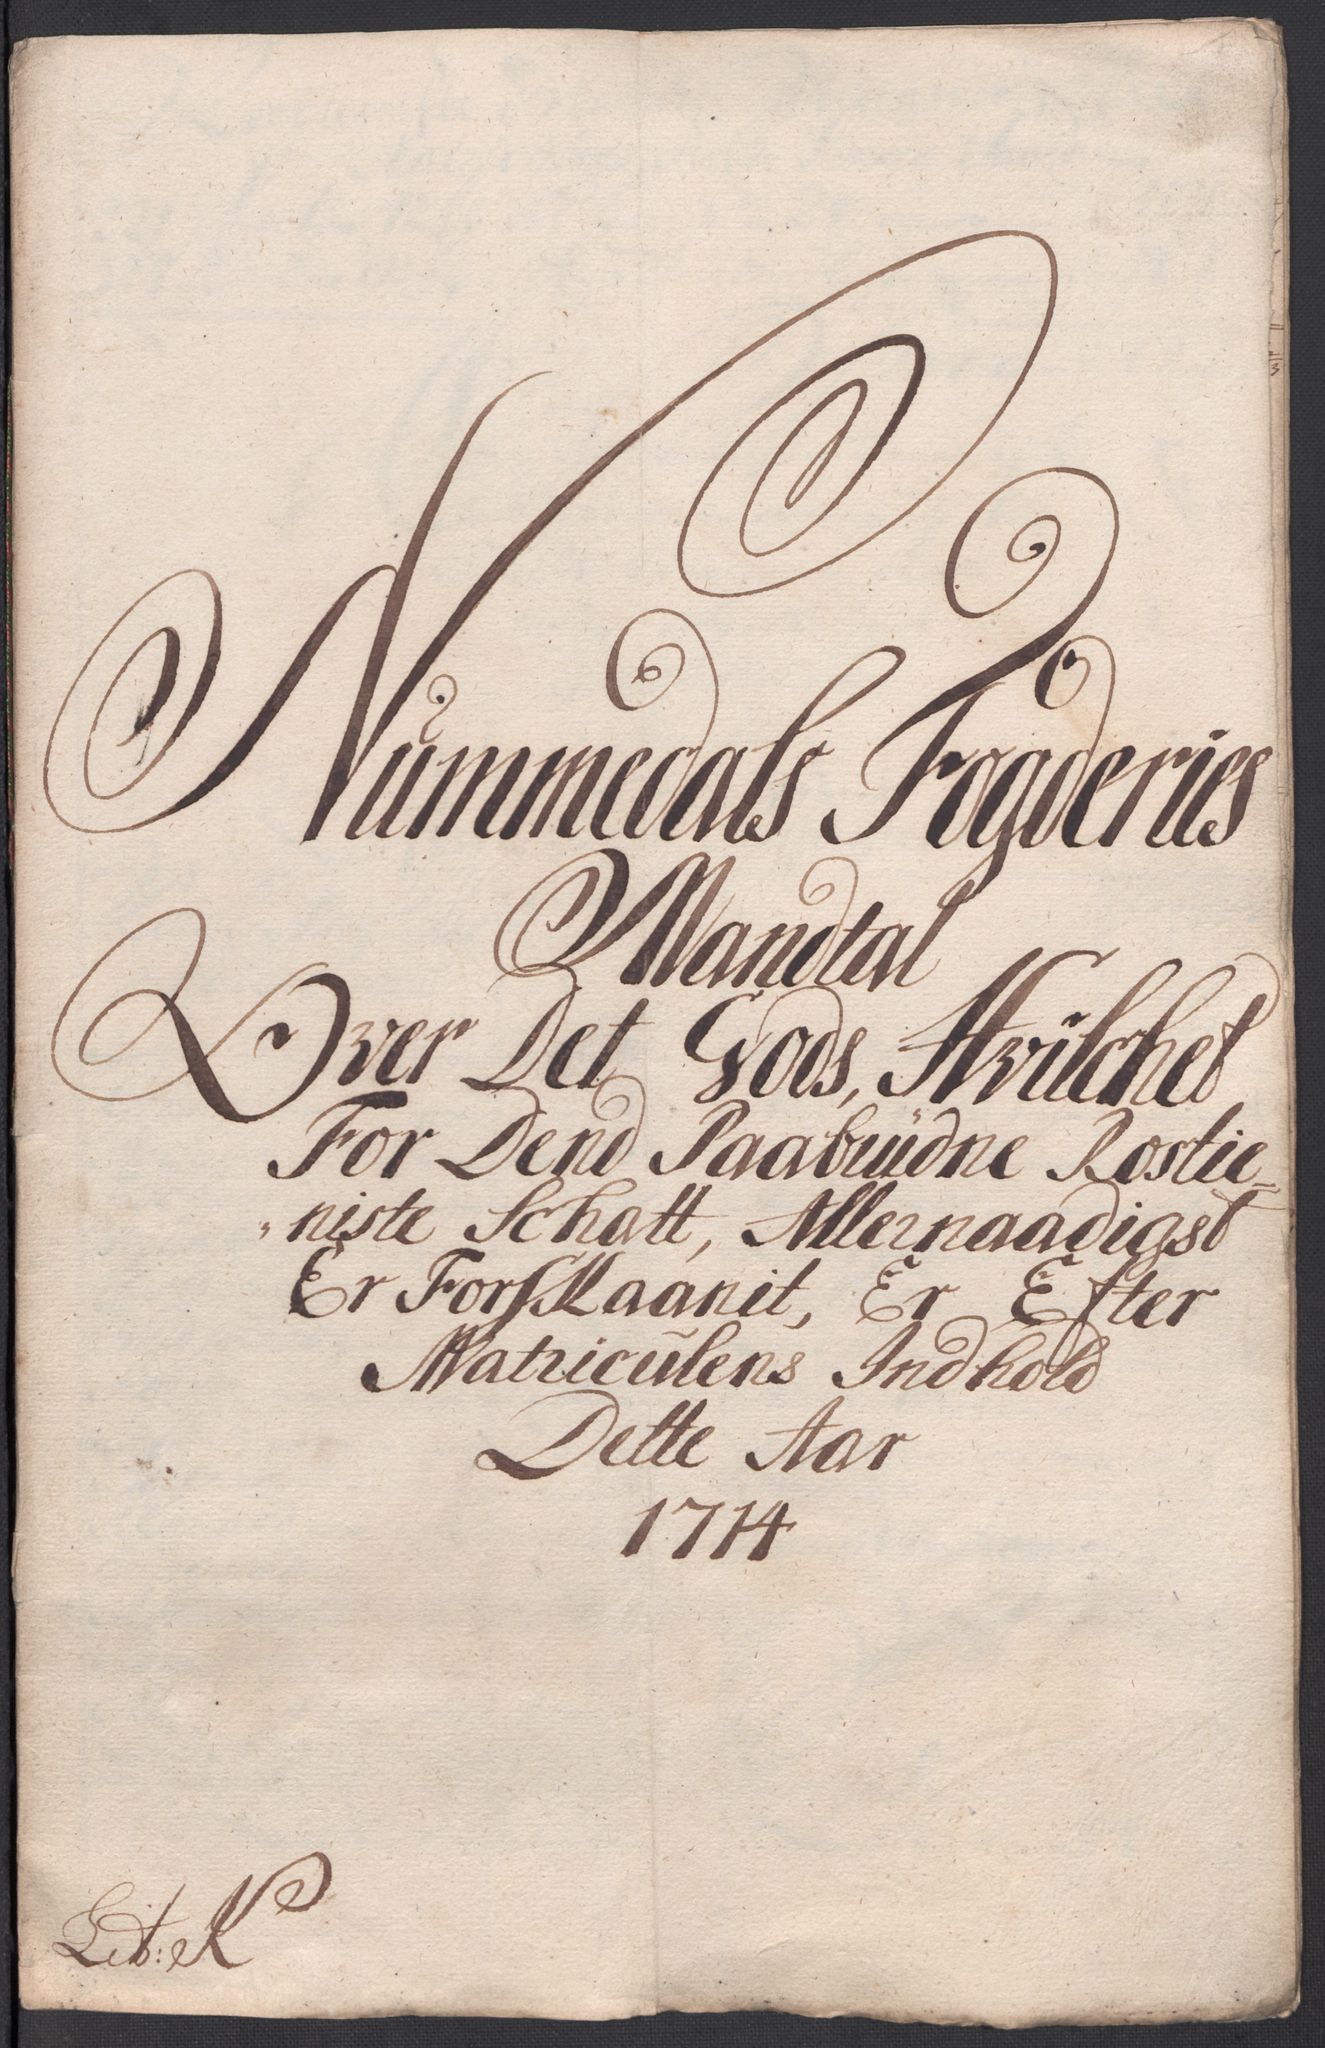 Nummedals Fogderies
Mandtal
Over Det Gods, Hvilchet
For Dend Paabudne Rostie=
niste Schatt, Allernaadigst
Er Forskaanit, Er Efter
Matriculens Indhold
Dette Aar
1714
Lit: K